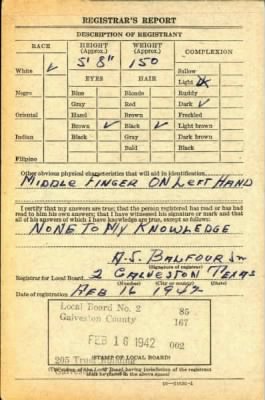 REGISTRAR'S REPORT
DESCRIPTION OF REGISTRANT
RACE HEIGHT (Approx.) WEIGHT (Approx.) COMPLEXION
5' 8" 150
White ✓ Sallow
EYES HAIR Light
Negro Blue Blonde Ruddy
Gray Red Dark ✓
Oriental Hazel Brown Freckled
Brown ✓ Black ✓ Light brown
Indian Black Gray Dark brown
Bald Black
Filipino
Other obvious physical characteristics that will aid in identification
MIDDLE FINGER ON LEFT HAND
I certify that my answers are true; that the person registered has read or has had
read to him his own answers; that I have witnessed his signature or mark and that
all of his answers of which I have knowledge are true, except as follows:
NONE TO MY KNOWLEDGE
A. J. BALFOUR Jr
(Signature of registrar)
Registrar for Local Board 2 GALVESTON TEXAS
(Number) (City or county) (State)
Date of registration FEB 16 1942
Local Board No. 2 85
Galveston County 167
FEB 16 1942 002
205 Trust Building
(STAMP OF LOCAL BOARD)
(The stamp of the Local Board having jurisdiction of the registrant
shall be placed in the above space)